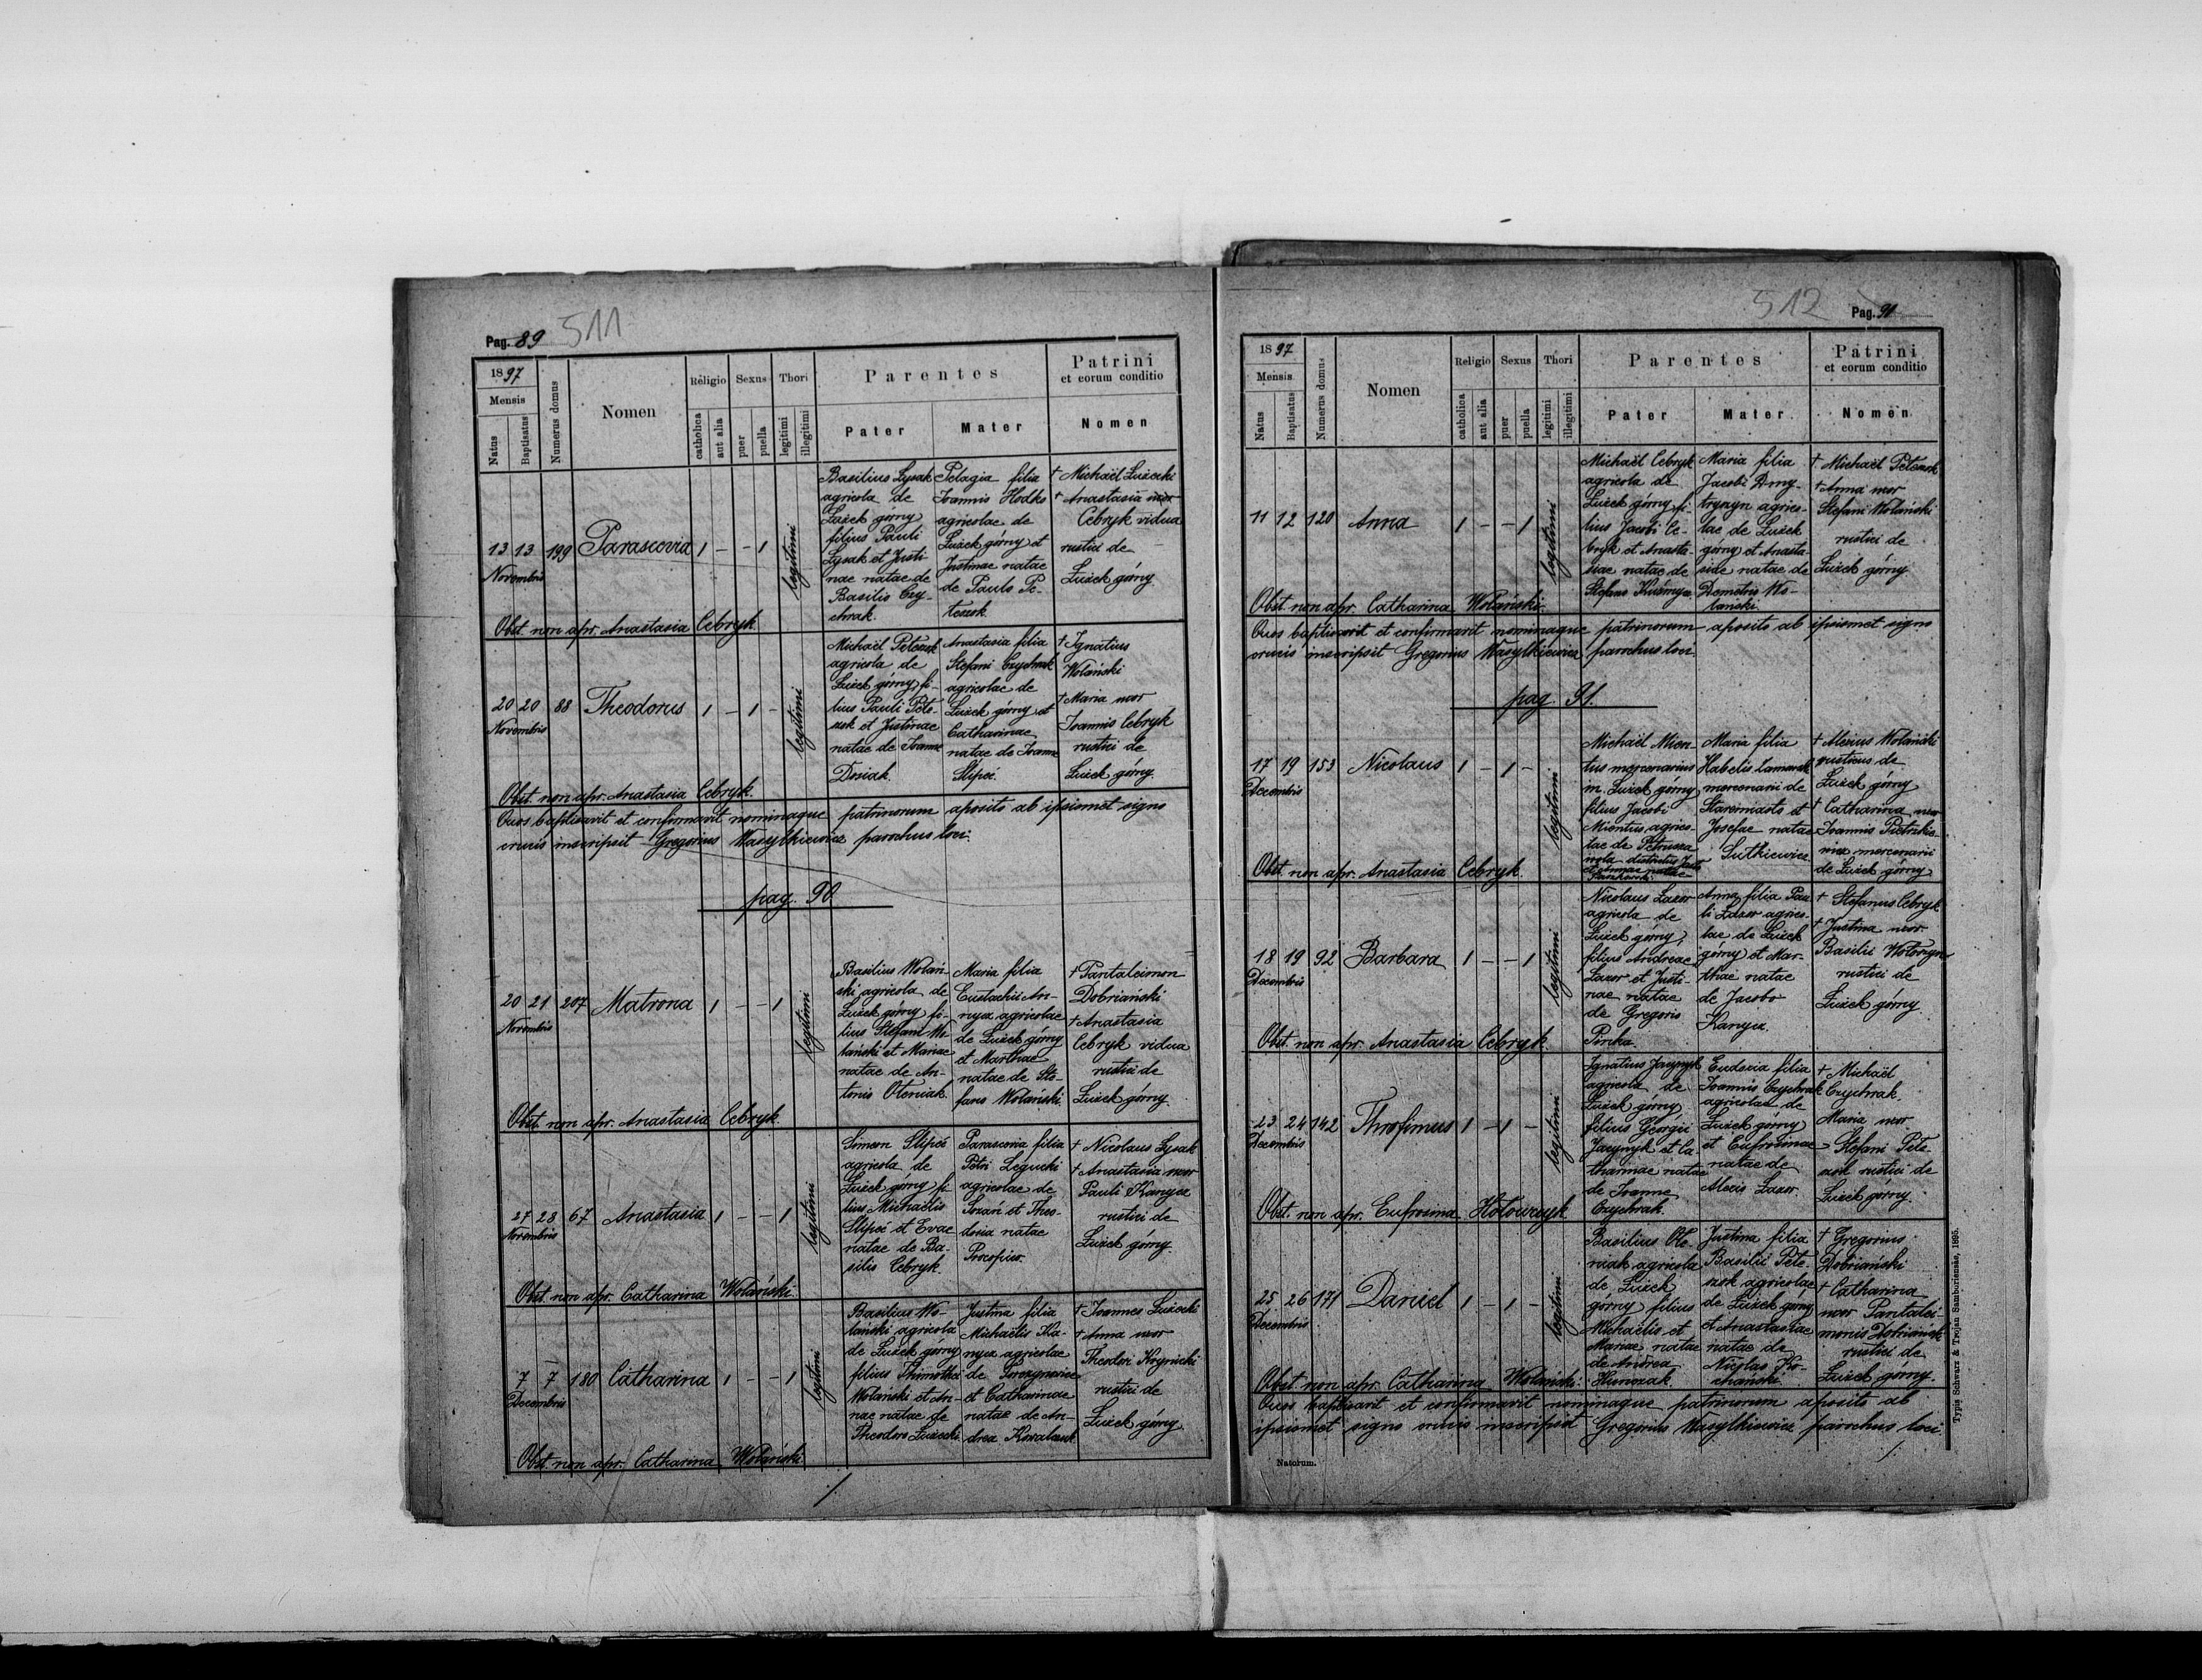 Pag. 89 511
1897
Mensis
Natus
Baptisatus
Numerus domus
Nomen
Religio
catholica
aut alia
Sexus
puer
puella
Thori
legitimi
illegitimi
Parentes
Pater
Mater
Patrini
et eorum conditio
Nomen
13 13 199 Parascovia 1 - - 1 legitimi
Novembris
Basilius Lysak
agricola de
Łużek górny
filius Pauli
Lysak et Justi-
nae natae de
Basilio Czy-
chrak.
Pelagia filia
Joannis Hodko
agricolae de
Łużek górny et
Justinae natae
de Paulo Pe-
teczok.
† Michaël Łużecki
† Anastasia uxor
Cebryk vidua
rustici de
Łużek górny
Obst. non apr. Anastasia Cebryk.
20 20 88 Theodorus 1 - 1 - legitimi
Novembris
Michaël Petczok
agricola de
Łużek górny, fi-
lius Pauli Pete-
czok et Justinae
natae de Joanne
Dosiak.
Anastasia filia
Stefani Czychrak
agricolae de
Łużek górny et
Catharinae
natae de Joanne
Slipeć.
† Ignatius
Wolański
† Maria uxor
Joannis Cebryk
rustici de
Łużek górny.
Obst. non apr. Anastasia Cebryk.
Quos baptisavit et confirmavit nominaque patrinorum aposito ab ipsismet signo
crucis inscripsit Gregorius Wasylkiewicz parochus loci.
pag. 90
20 21 207 Matrona 1 - - 1 legitimi
Novembris
Basilius Wolań-
ski agricola de
Łużek górny fi-
lius Stefani Wo-
lański et Mariae
natae de An-
tonio Oleniak.
Maria filia
Eustachii An-
nycz agricolae
de Łużek górny
et Marthae
natae de Ste-
fano Wolański.
† Pantaleimon
Dobriański
† Anastasia
Cebryk vidua
rustici de
Łużek górny.
Obst. non apr. Anastasia Cebryk.
27 28 67 Anastasia 1 - - 1 legitimi
Novembris
Simeon Slipeć
agricola de
Łużek górny fi-
lius Michaelis
Slipeć et Evae
natae de Ba-
silio Cebryk.
Parascovia filia
Petri Legucki
agricolae de
et Theo-
dosia natae
† Nicolaus Lysak
† Anastasia uxor
Pauli Kanycz
rustici de
Łużek górny.
Obst. non apr. Catharina Wolański.
7 7 180 Catharina 1 - - 1 legitimi
Decembris
Basilius Wo-
lański agricola
de Łużek górny
filius Thimothei
Wolański et An-
nae natae de
Theodoro Łużecki.
Justina filia
Michaëlis Ka-
nycz agricolae
de
et Catharinae
natae de An-
drea Kowalczuk.
† Joannes Łużecki
† Anna uxor
Theodori Krynicki
rustici de
Łużek górny
Obst. non apr. Catharina Wolański.
512 Pag. 91
1897
Mensis
Natus
Baptisatus
Numerus domus
Nomen
Religio
catholica
aut alia
Sexus
puer
puella
Thori
legitimi
illegitimi
Parentes
Pater
Mater
Patrini
et eorum conditio
Nomen
11 12 120 Anna 1 - - 1 legitimi
Michaël Cebryk
agricola de
Łużek górny, fi-
lius Jacobi Ce-
bryk et Anasta-
siae natae de
Stefano Kuśmycz.
Maria filia
Jacobi Dmy-
trynyn agrico-
lae de Łużek
górny et Anasta-
siae natae de
Demetrio Wo-
lański.
† Michaël Petczok
† Anna uxor
Stefani Wolański
rustici de
Łużek górny
Obst. non apr. Catharina Wolański.
Quos baptisavit et confirmavit nominaque patrinorum aposito ab ipsismet signo
crucis inscripsit Gregorius Wasylkiewicz parochus loci.
pag. 91.
17 19 153 Nicolaus 1 - 1 - legitimi
Decembris
Michaël Mien-
tus mercenarius
in Łużek górny
filius Jacobi
Mientus agrico-
lae de Petrusza
wola districtus
et Annae natae
Maria filia
mercenarii de
Staremiasto et
Josefae natae
Sutkiewicz.
† Alexius Wolański
rusticus de
Łużek górny
† Catharina uxor
Joannis Pietrkie-
wicz mercenarii
de Łużek górny
Obst. non apr. Anastasia Cebryk.
18 19 92 Barbara 1 - - 1 legitimi
Decembris
Nicolaus Lazor
agricola de
Łużek górny,
filius Andreae
Lazor et Justi-
nae natae
de Gregorio
Pinka.
Anna filia Pau-
li Lazor agrico-
lae de Łużek
górny et Mar-
thae natae
de Jacobo
Kanycz.
† Stefanus Cebryk
† Justina uxor
Basilii Wołoszyn
rustici de
Łużek górny
Obst. non apr. Anastasia Cebryk.
23 24 142 Throfimus 1 - 1 - legitimi
Decembris
Ignatius Jacynyk
agricola de
Łużek górny,
filius Georgii
Jacynyk et Ca-
tharinae natae
de Joanne
Czychrak.
Eudocia filia
Joannis Czychrak
agricolae de
Łużek górny
et Eufrosinae
natae de
Alexio Lazor.
† Michaël
Czychrak.
Maria uxor
Stefani Pete-
czok rustici de
Łużek górny.
Obst. non apr. Eufrosina Hołowczyk
25 26 171 Daniel 1 - 1 - legitimi
Decembris
Basilius Ole-
niak agricola
de Łużek
górny filius
Michaëlis et
Mariae natae
de Andrea
Hunczak.
Justina filia
Basilii Pete-
czok agricolae
de Łużek górny
et Anastasiae
natae de
Nicolao Ko-
chański.
† Gregorius
Dobriański
† Catharina
uxor Pantalei-
monis Dobriański
rustici de
Łużek górny.
Obst. non apr. Catharina Wolański.
Quos baptisavit et confirmavit nominaque patrinorum aposito ab
ipsismet signo crucis inscripsit Gregorius Wasylkiewicz parochus loci.
Natorum.
Typis Schwarz & Trojan Samboriensae, 1895.